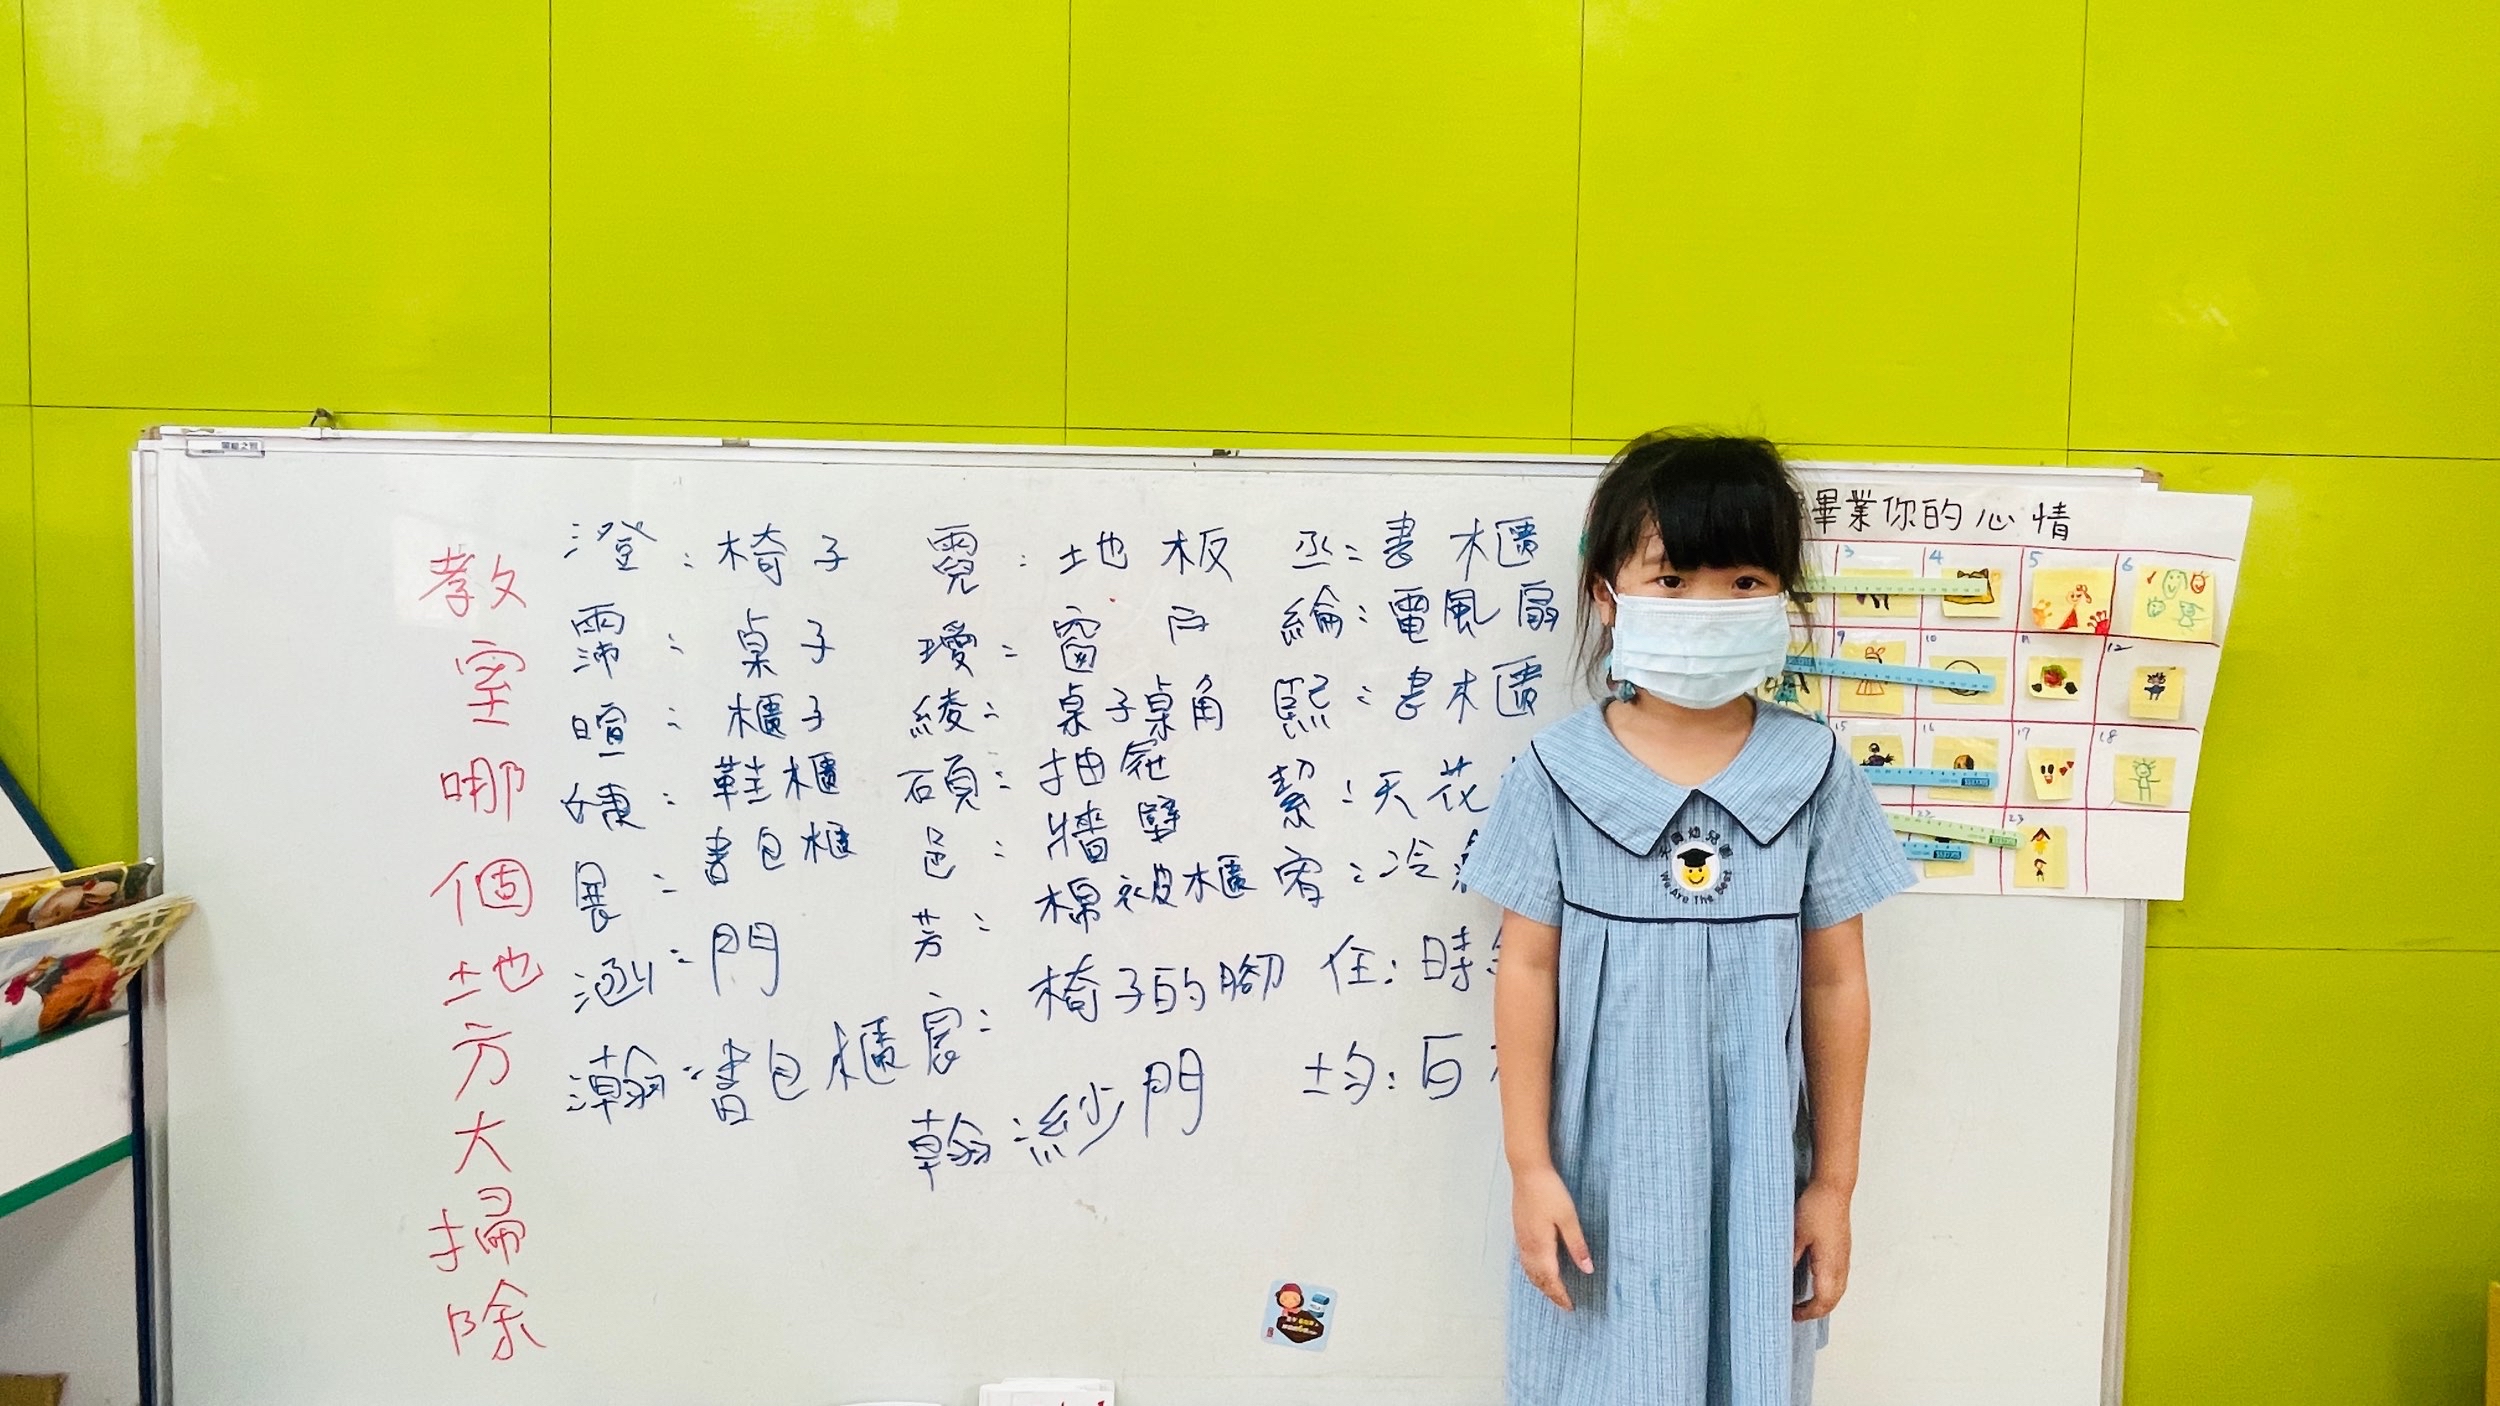 教室哪個地方大掃除
澄:椅子
霈:桌子
暄:櫃子
婕:鞋櫃
展:書包櫃
涵:門
瀚:書包櫃
霓:地板
璦:窗戶
綾:桌子桌角
碩:抽屜
邑:牆壁
芳:棉被櫃
宸:椅子的腳
翰:紗門
丞:書櫃
綸:電風扇
熙:書櫃
絜:天花
宥:冷
住:時
均:百
畢業你的心情
3 4 5 6
9 10 11 12
15 16 17 18
22 23
幼兒園
We Are The Best